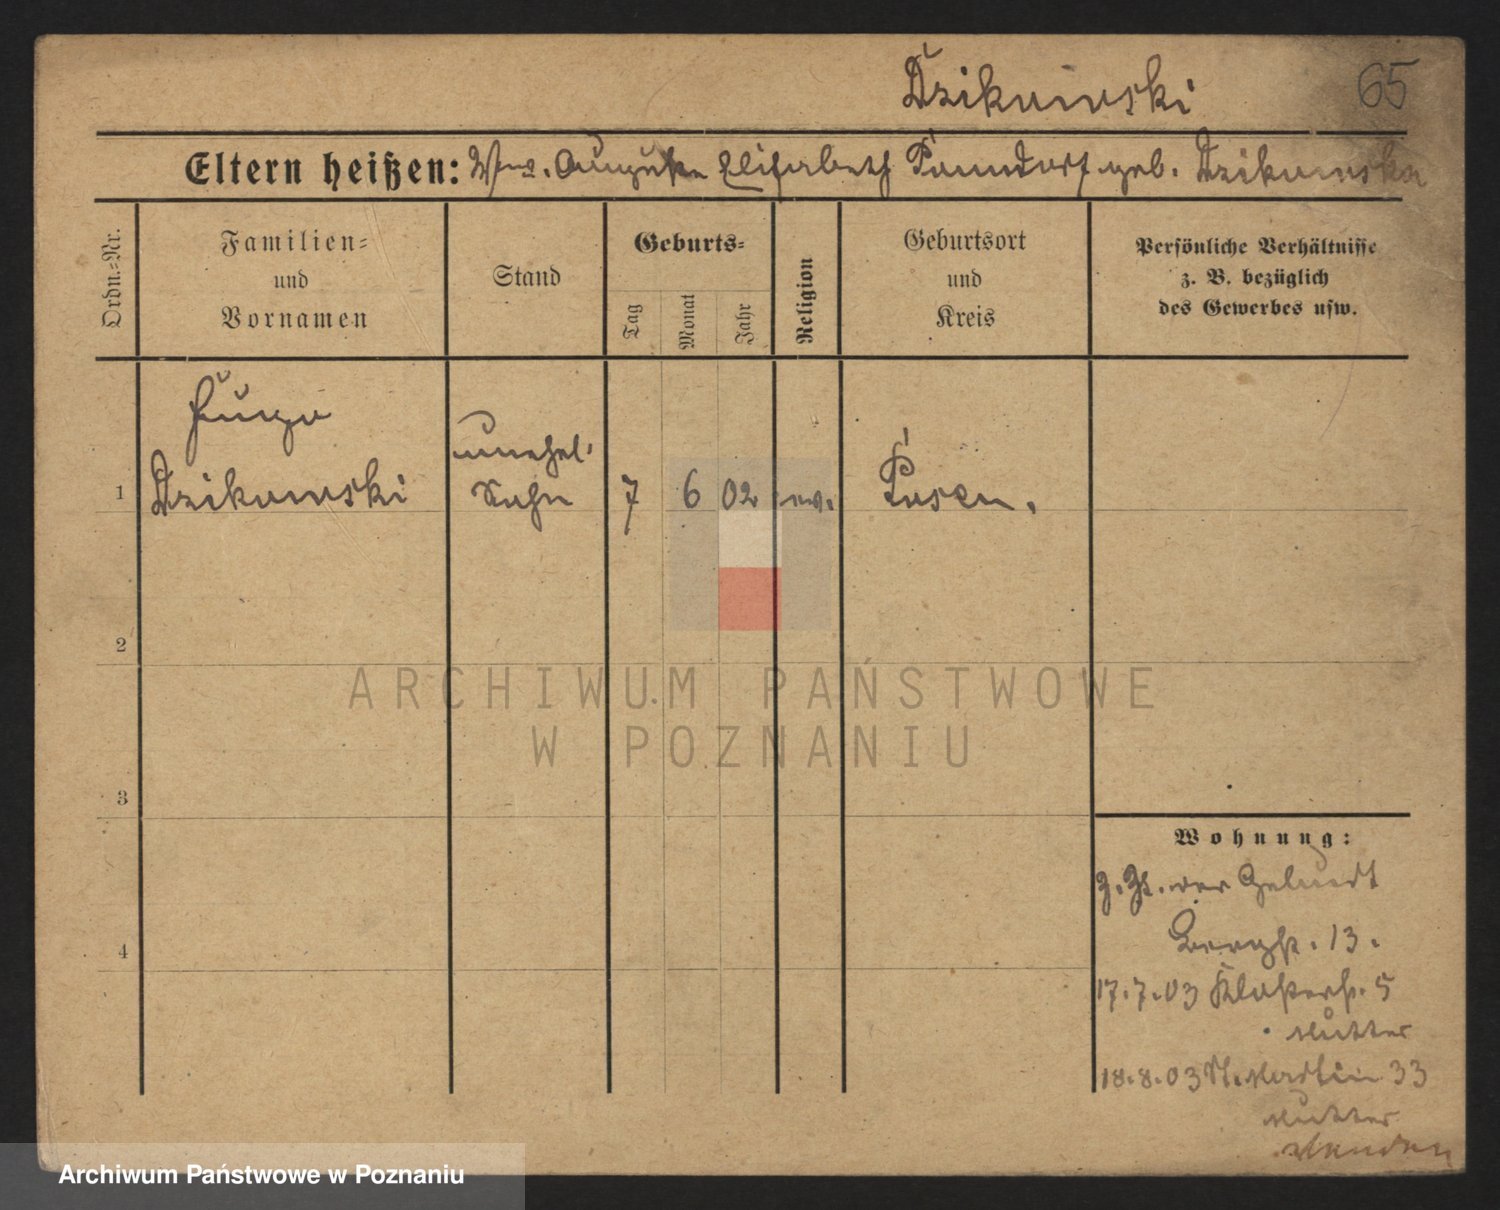 Dzikowski
65
Eltern heißen: Wwe. Auguste Elisabeth Panndorf geb. Dzikowska
Ordn.=Nr.
Familien=
und
Vornamen
Stand
Geburts=
Tag
Monat
Jahr
Religion
Geburtsort
und
Kreis
Persönliche Verhältnisse
z. B. bezüglich
des Gewerbes usw.
Hugo
unehel.
1 Dzikowski Sohn 7 6 02 ev. Posen.
2
ARCHIWUM PAŃSTWOWE
W POZNANIU
3
Wohnung:
z. Zt. der Geburt
4
Bergstr. 13.
17.7.03 Klosterstr. 5
Mutter
18.8.03 St. Martin 33
Mutter
Archiwum Państwowe w Poznaniu